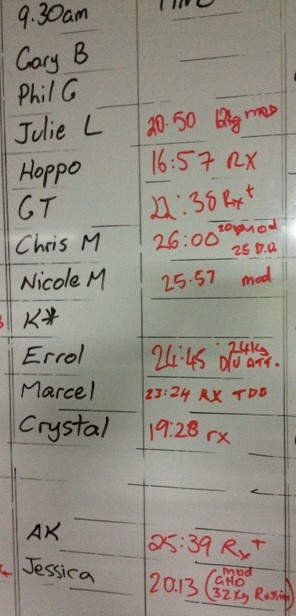 9.30am TIME
Gary B
Phil G
Julie L 20.50 12kg mod
Hoppo 16:57 RX
GT 22:38 Rx+
Chris M 26:00 20kg mod
25 D.U
Nicole M 25.57 mod
K*
Errol 24:45 24kg
D/U ATT.
Marcel 23:24 RX TDE
Crystal 19:28 rx
AK 25:39 Rx+
Jessica 20.13 (mod
GHD
32kg Russian)